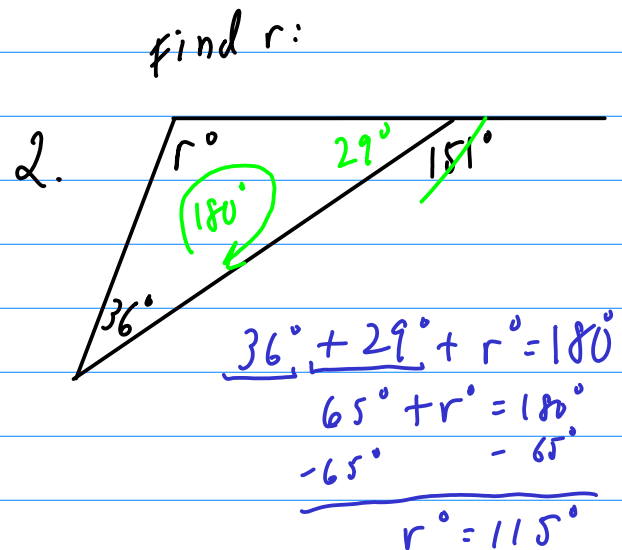 Find r:
2.
r°
29°
151°
180°
36°
36° + 29° + r° = 180°
65° + r° = 180°
-65° - 65°
r° = 115°